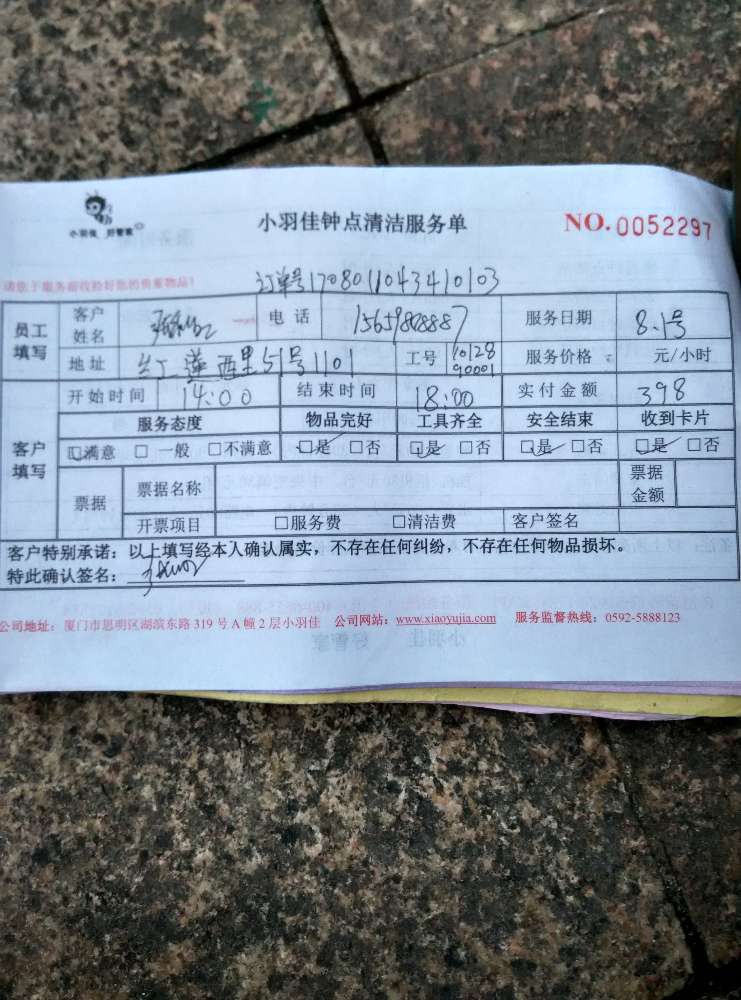 小羽佳 好管家
小羽佳钟点清洁服务单
NO. 0052297
请您于服务前收拾好您的贵重物品!
订单号1708011043410103
员工填写 客户姓名 电话 15659808887 服务日期 8.1号
地址 红莲西里51号1101 工号 10128 90001 服务价格: 元/小时
客户填写 开始时间 14:00 结束时间 18:00 实付金额 398
服务态度 物品完好 工具齐全 安全结束 收到卡片
☑满意 □一般 □不满意 ☑是 □否 ☑是 □否 ☑是 □否 ☑是 □否
票据 票据名称 票据金额
开票项目 □服务费 □清洁费 客户签名
客户特别承诺：以上填写经本人确认属实，不存在任何纠纷，不存在任何物品损坏。
特此确认签名：
公司地址：厦门市思明区湖滨东路319号A幢2层小羽佳 公司网站：www.xiaoyujia.com 服务监督热线：0592-5888123